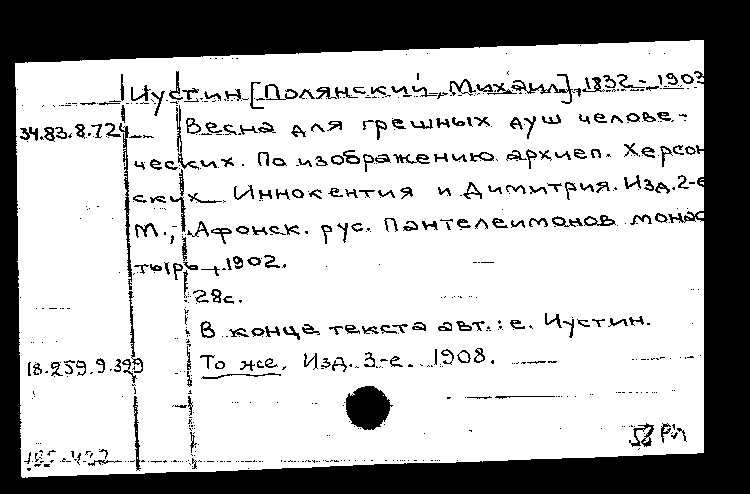 Иустин [Полянский, Михаил], 1832-1903
34.83.8.724 Весна для грешных душ челове-
ческих. По изображению архиеп. Херсон
ских Иннокентия и Димитрия. Изд. 2-е
М., Афонск. рус. Пантелеимонов монас
тырь, 1902.
28с.
В конце текста авт.: е. Иустин.
18.259.9.399 То же. Изд. 3-е. 1908.
58 РИ
185-422